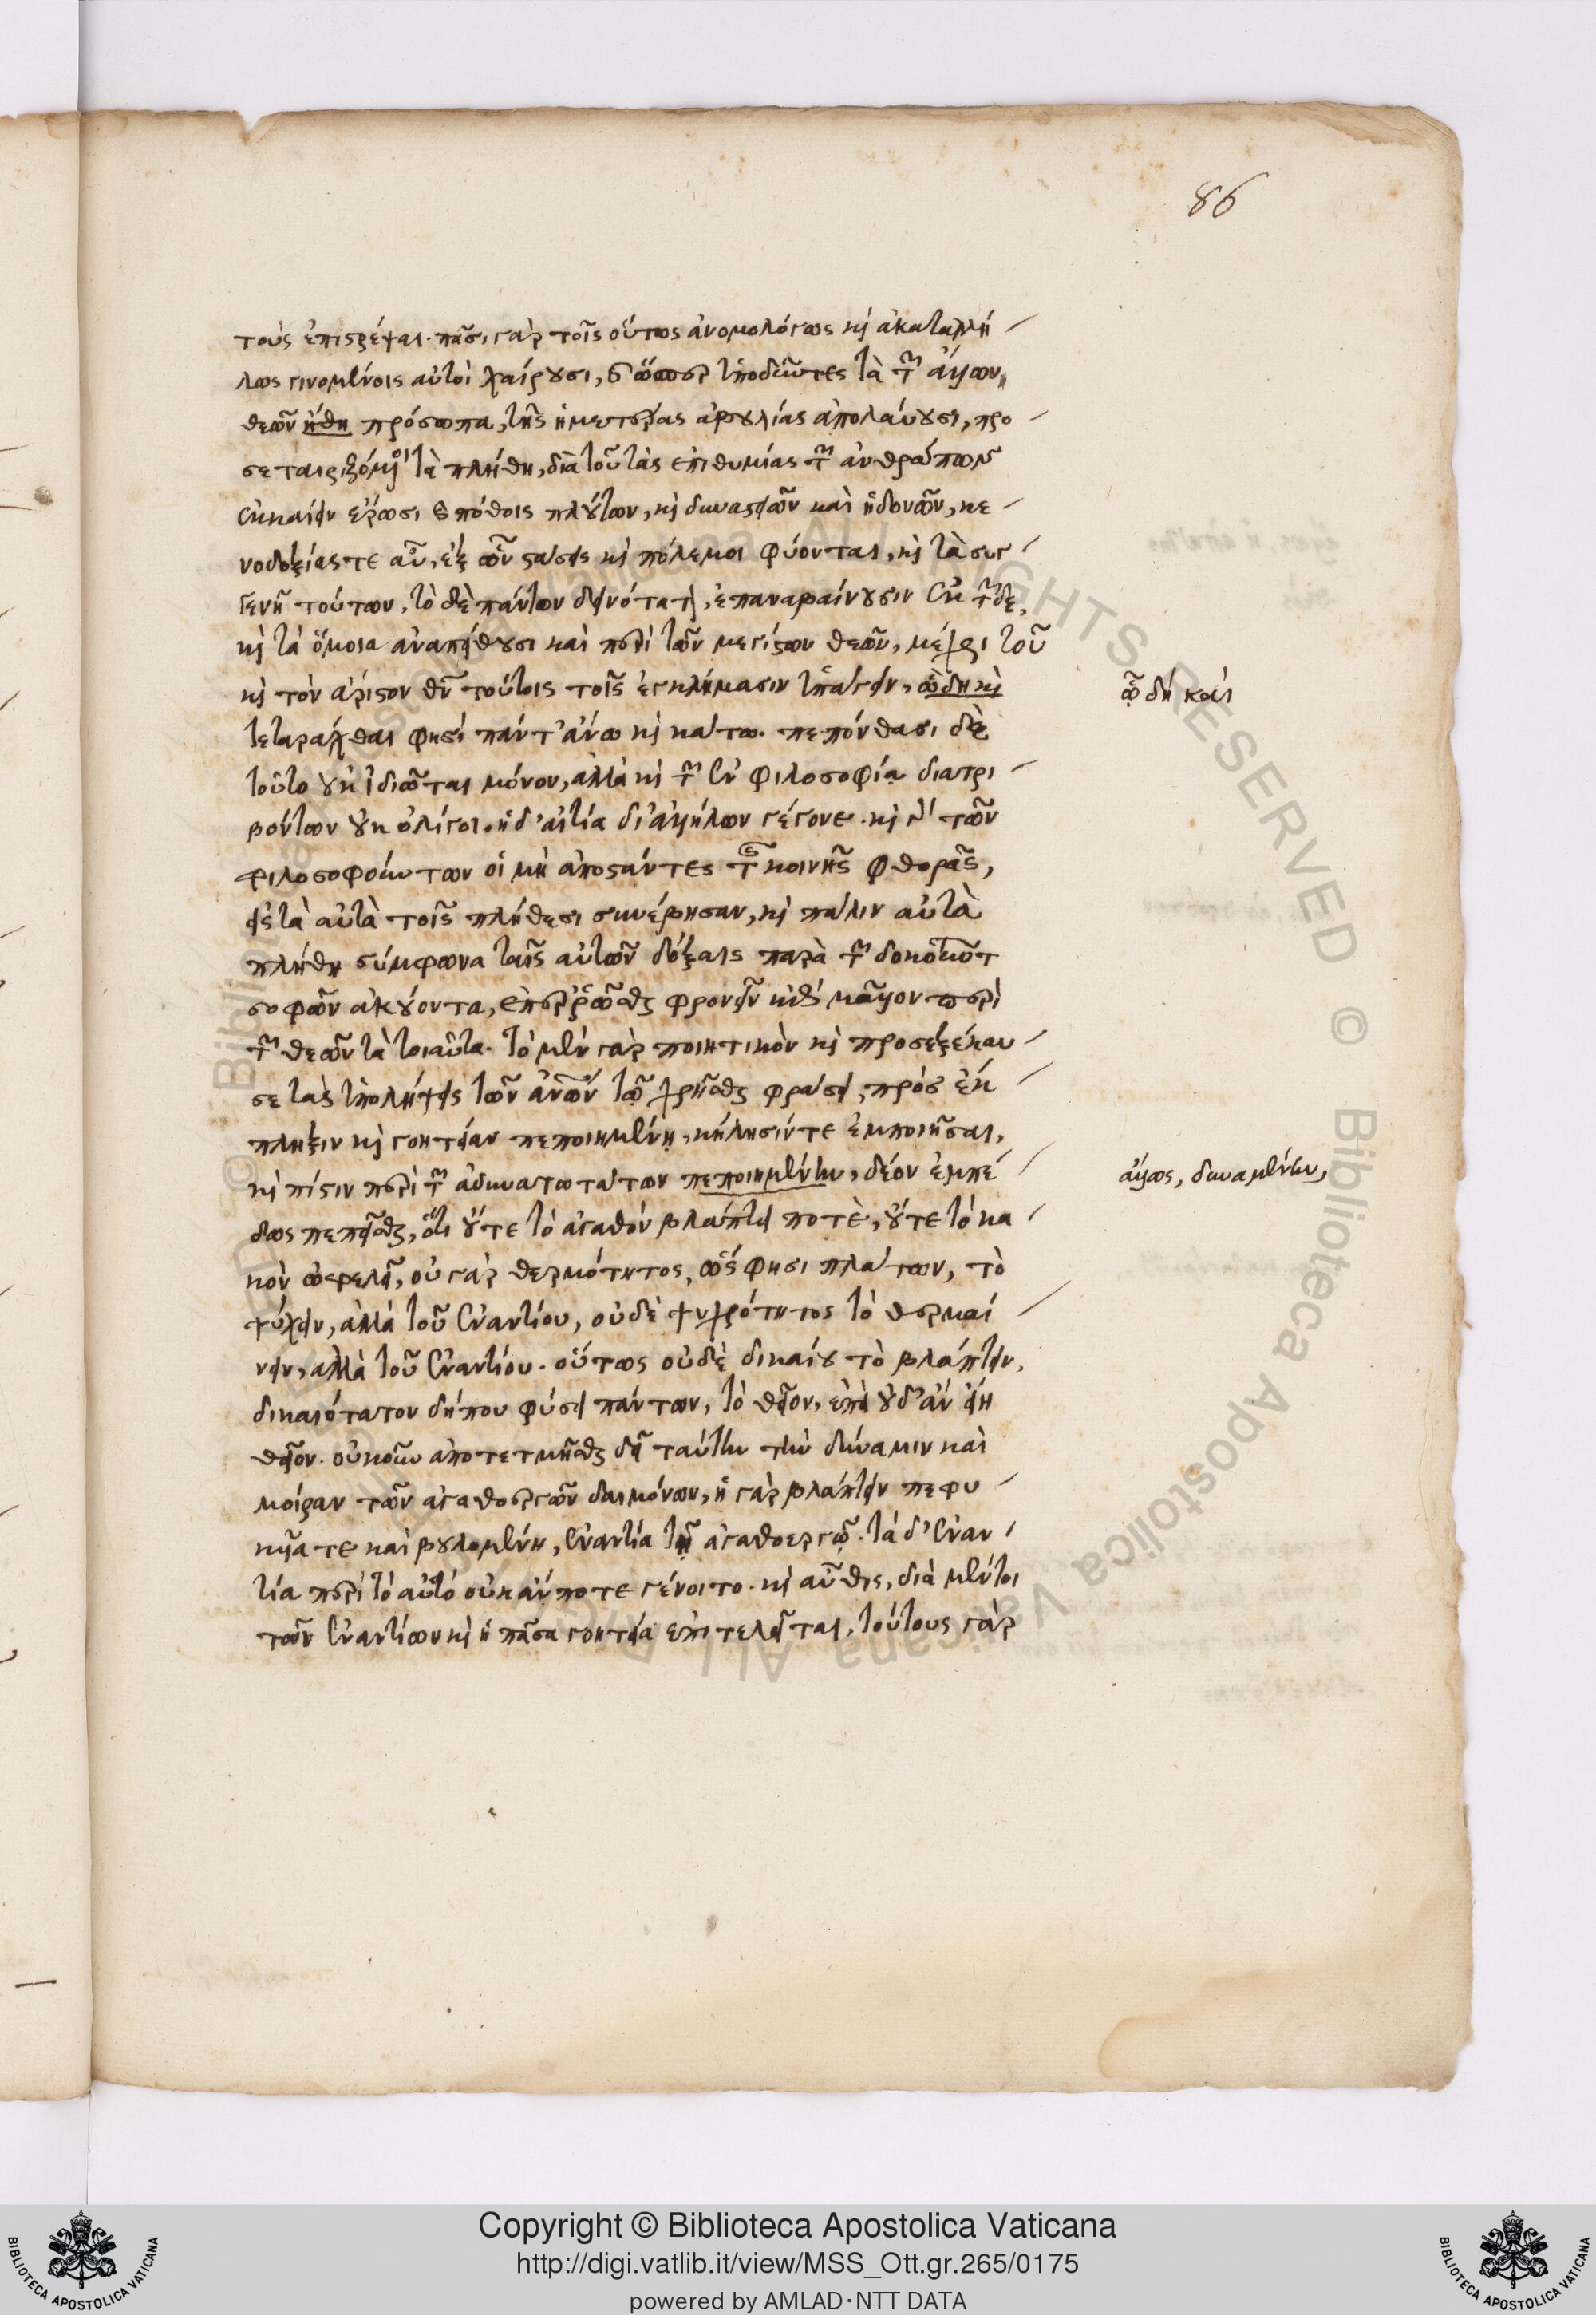 86
τοὺς ἐπιστρέψαι. πᾶσι γὰρ τοῖς οὕτως ἀνομολόγως καὶ ἀκαταλλή
λως γινομένοις αὐτοὶ χαίρουσι, καὶ ὥσπερ ὑποδύντες τὰ τῶν ἄλλων
θεῶν ἤθη πρόσωπα, τῆς ἡμετέρας ἀβουλίας ἀπολαύουσι, προ
σεταιριζόμενοι τὰ πλήθη, διὰ τοῦ τὰς ἐπιθυμίας τῶν ἀνθρώπων
ἐκκαίειν ἔρωσι καὶ πόθοις πλούτων, καὶ δυναστειῶν καὶ ἡδονῶν, κε
νοδοξίας τε αὖ, ἐξ ὧν στάσεις καὶ πόλεμοι φύονται, καὶ τὰ συγ
γενῆ τούτων, τὸ δὲ πάντων δεινότατον, ἐπαναβαίνουσιν ἐκ τῶνδε,
καὶ τὰ ὅμοια ἀναπείθουσι καὶ περὶ τῶν μεγίστων θεῶν, μέχρι τοῦ
καὶ τὸν ἄριστον θεὸν τούτοις τοῖς ἐγκλήμασιν ὑπάγειν, ᾧ δὴ καὶ
ᾧ δὴ καὶ
τεταράχθαι φησὶ πάντ' ἄνω καὶ κάτω. πεπόνθασι δὲ
τοῦτο οὐκ ἰδιῶται μόνον, ἀλλὰ καὶ τῶν ἐν φιλοσοφίᾳ διατρι
βόντων οὐκ ὀλίγοι. ἡ δ' αἰτία δι' ἀλλήλων γέγονε. καὶ γὰρ τῶν
φιλοσοφούντων οἱ μὴ ἀποστάντες τῆς κοινῆς φθορᾶς,
εἰς τὰ αὐτὰ τοῖς πλήθεσι συνέβησαν, καὶ πάλιν αὐτὰ
πλήθη σύμφωνα ταῖς αὐτῶν δόξαις παρὰ τῶν δοκούντων
σοφῶν ἀκούοντα, ἐπερρώσθη φρονεῖν ἔτι μᾶλλον περὶ
τῶν θεῶν τὰ τοιαῦτα. τὸ μὲν γὰρ ποιητικὸν καὶ προσεξέκαυ
σε τὰς ὑπολήψεις τῶν ἀνθρώπων τῷ χρῆσθαι φράσει, πρὸς ἔκ
πληξιν καὶ γοητείαν πεποιημένῃ, κήλησίν τε ἐμποιῆσαι,
καὶ πίστιν περὶ τῶν ἀδυνατωτάτων πεποιημένην, δέον ἐμπέ
ἄλλως, δυναμένην,
δως πεπεῖσθαι, ὅτι οὔτε τὸ ἀγαθὸν βλάπτει ποτὲ, οὔτε τὸ κα
κὸν ὠφελεῖ, οὐ γὰρ θερμότητος, ὥς φησι πλάτων, τὸ
ψύχειν, ἀλλὰ τοῦ ἐναντίου, οὐδὲ ψυχρότητος τὸ θερμαί
νειν, ἀλλὰ τοῦ ἐναντίου. οὕτως οὐδὲ δικαίου τὸ βλάπτειν,
δικαιότατον δήπου φύσει πάντων, τὸ θεῖον, ἐπεὶ οὐδ' ἂν εἴη
θεῖον. οὐκοῦν ἀποτετμῆσθαι δεῖ ταύτην τὴν δύναμιν καὶ
μοῖραν τῶν ἀγαθοεργῶν δαιμόνων, ἡ γὰρ βλάπτειν πεφυ
κυῖα τε καὶ βουλομένη, ἐναντία τῇ ἀγαθοεργῷ. τὰ δ' ἐναν
τία περὶ τὸ αὐτὸ οὐκ ἄν ποτε γένοιτο. καὶ αὖθις, διὰ μέντοι
τῶν ἐναντίων καὶ ἡ πᾶσα γοητεία ἐπιτελεῖται, τούτους γὰρ
Copyright © Biblioteca Apostolica Vaticana
http://digi.vatlib.it/view/MSS_Ott.gr.265/0175
powered by AMLAD·NTT DATA